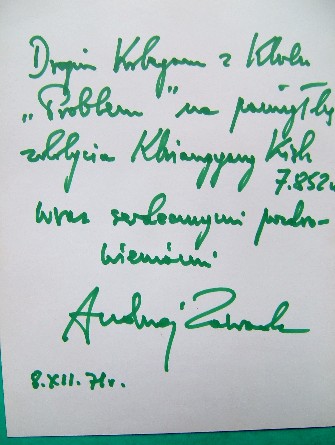 Drogim Kolegom z Klubu
„Problem” na pamiątkę
zdobycia Khiangyang Kish
7.852
wraz serdecznymi pozdro-
wieniami
Andrzej Zawada
8.XII.71r.